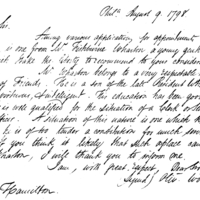 Phil.a August 9. 1798
Sir,
Among various applications for appointments
is one from Mr Fishbourne Wharton a young gentl
that take the liberty to recommend to your consider
Mr Wharton belongs to a very respectable
of Friends. He is a son of the late President Wh
virtuous, intelligent. His education has been good
is well qualified for the situation of a Clerk or
officer. A situation of this nature is one which
he is of too tender a constitution for much
If you think it likely that such a place can
Wharton, I will thank you to inform me.
I am, with great respect, Dear Sir
Signed
Hamilton